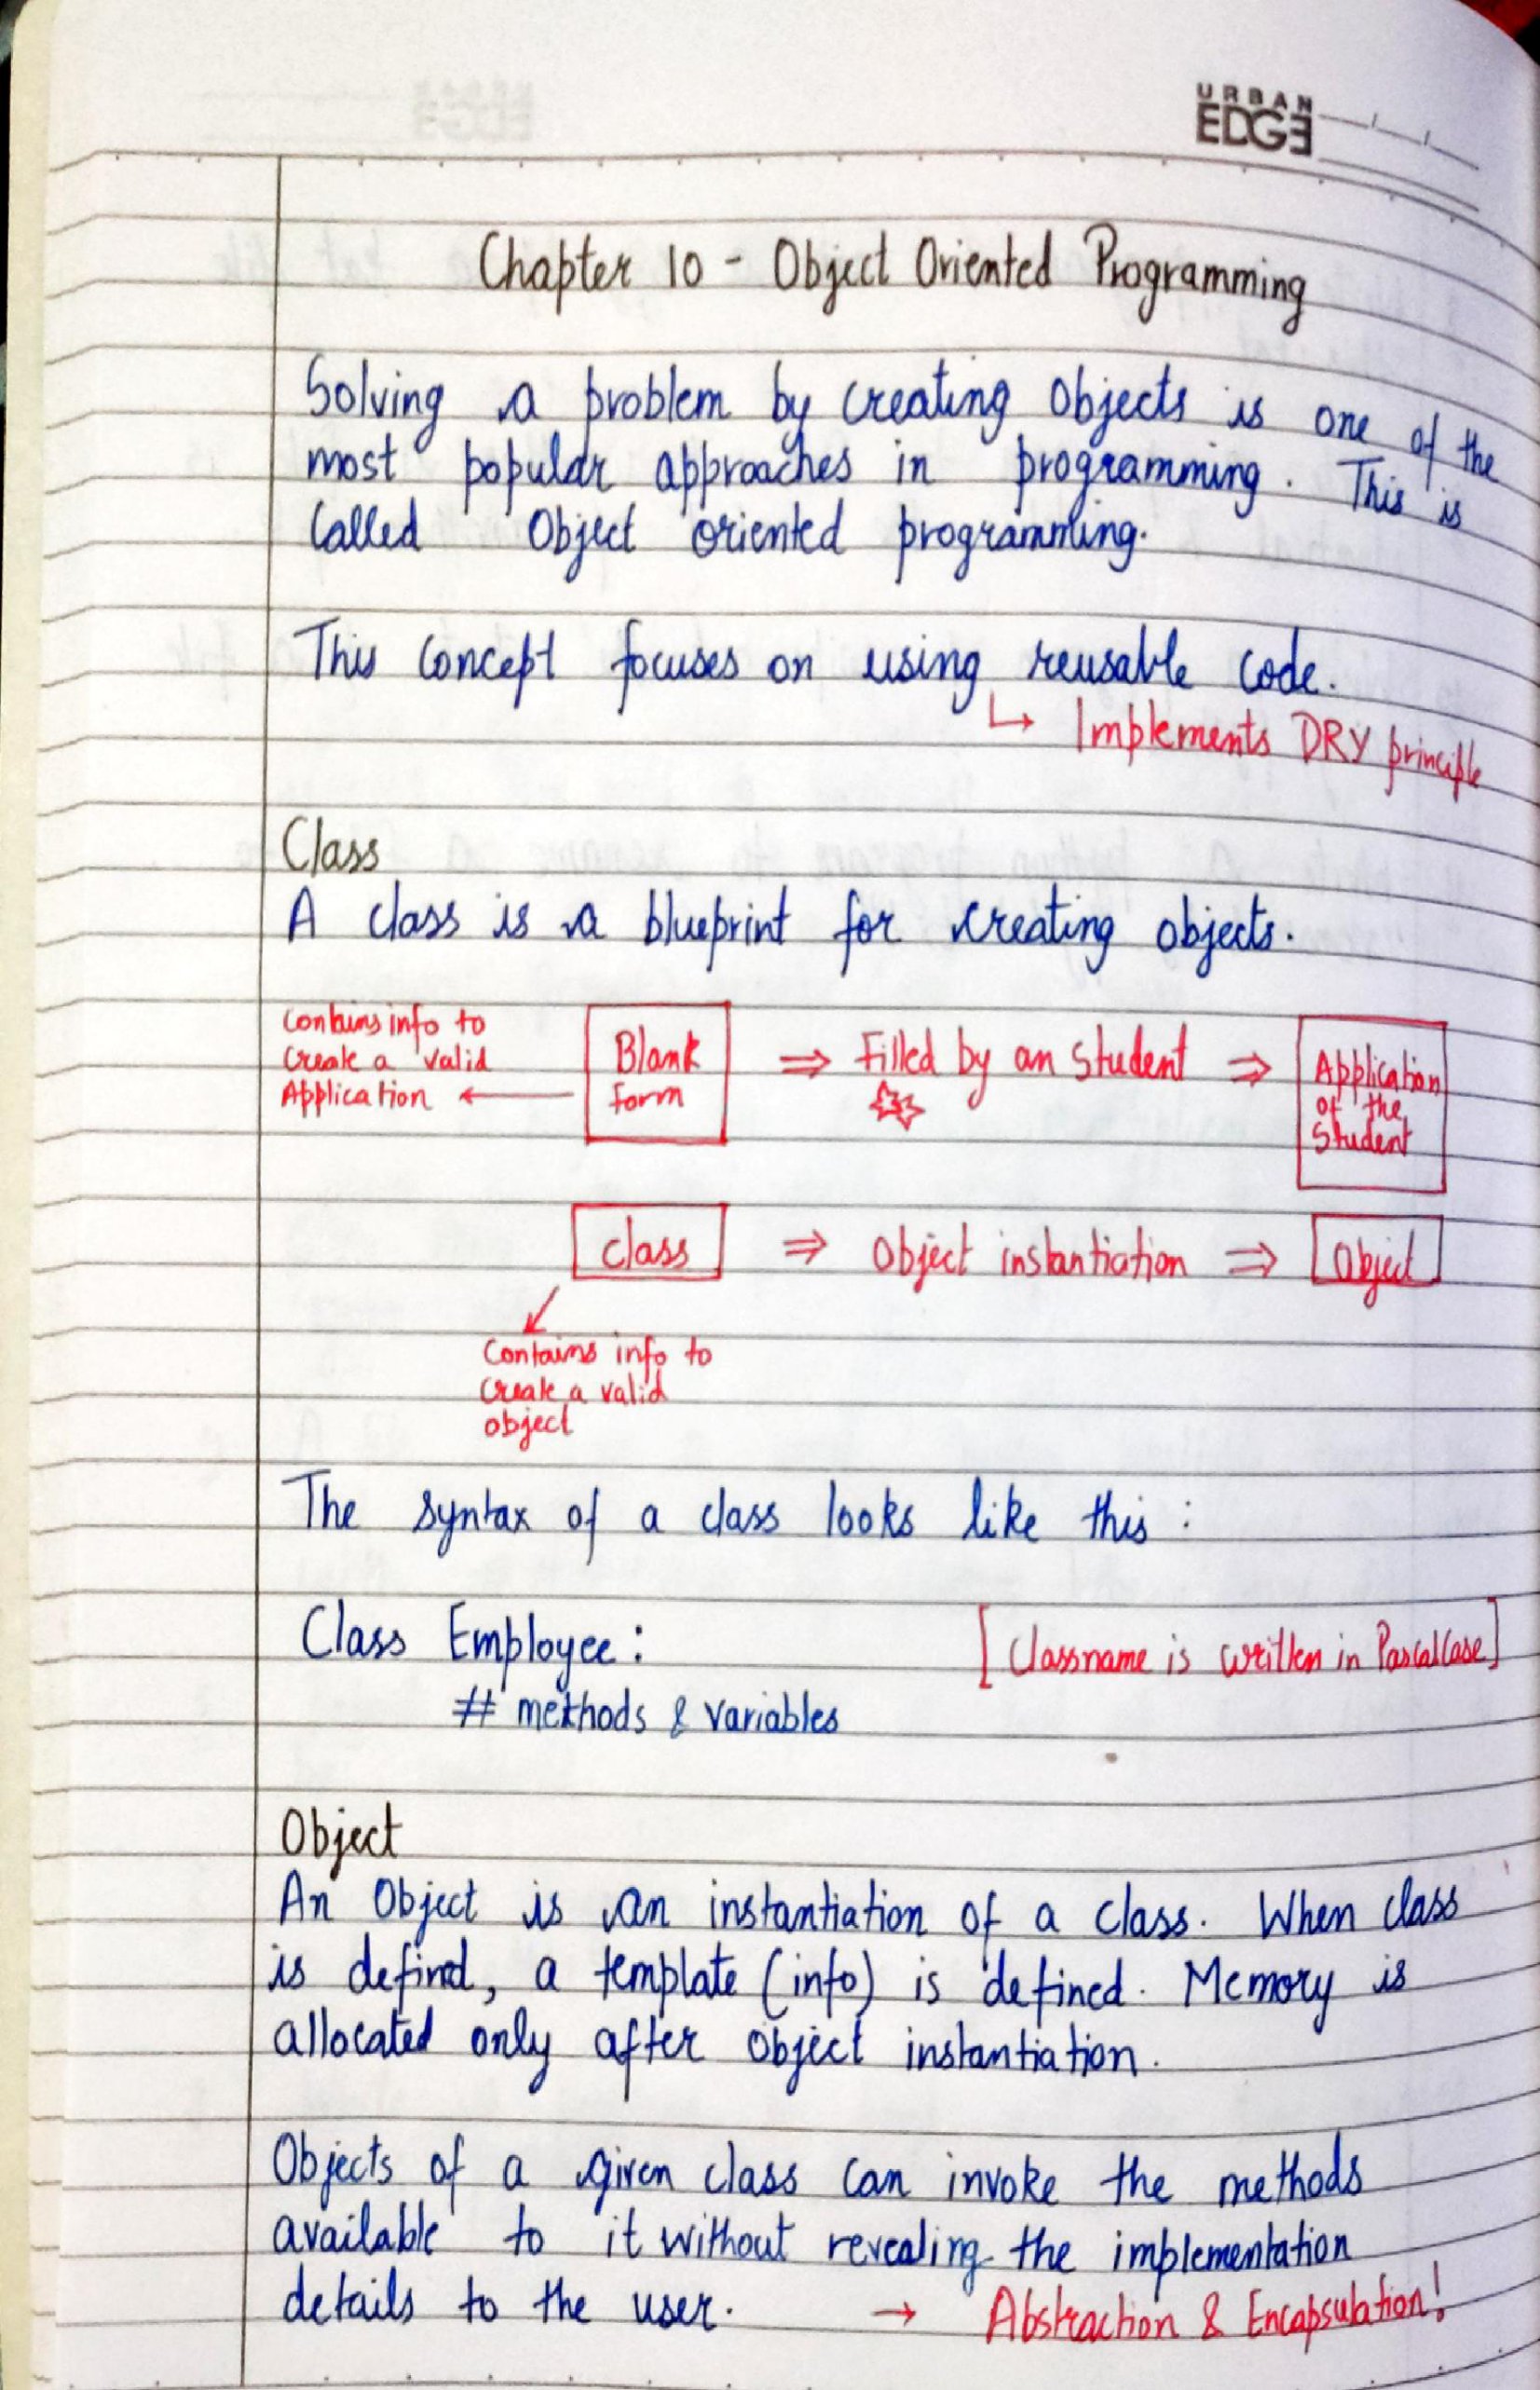 URBAN
EDGE
Chapter 10 - Object Oriented Programming
Solving a problem by creating objects is one of the
most popular approaches in programming. This is
called Object oriented programming.
This concept focuses on using reusable code.
↳ Implements DRY principle
Class
A class is a blueprint for creating objects.
Contains info to
create a valid
Application ← Blank
form ⇒ Filled by an Student ⇒ Application
of the
Student
class ⇒ Object instantiation ⇒ Object
Contains info to
create a valid
object
The syntax of a class looks like this :
Class Employee : [Classname is written in PascalCase]
# methods & variables
Object
An Object is an instantiation of a class. When class
is defined, a template (info) is defined. Memory is
allocated only after object instantiation.
Objects of a given class can invoke the methods
available to it without revealing the implementation
details to the user. → Abstraction & Encapsulation!